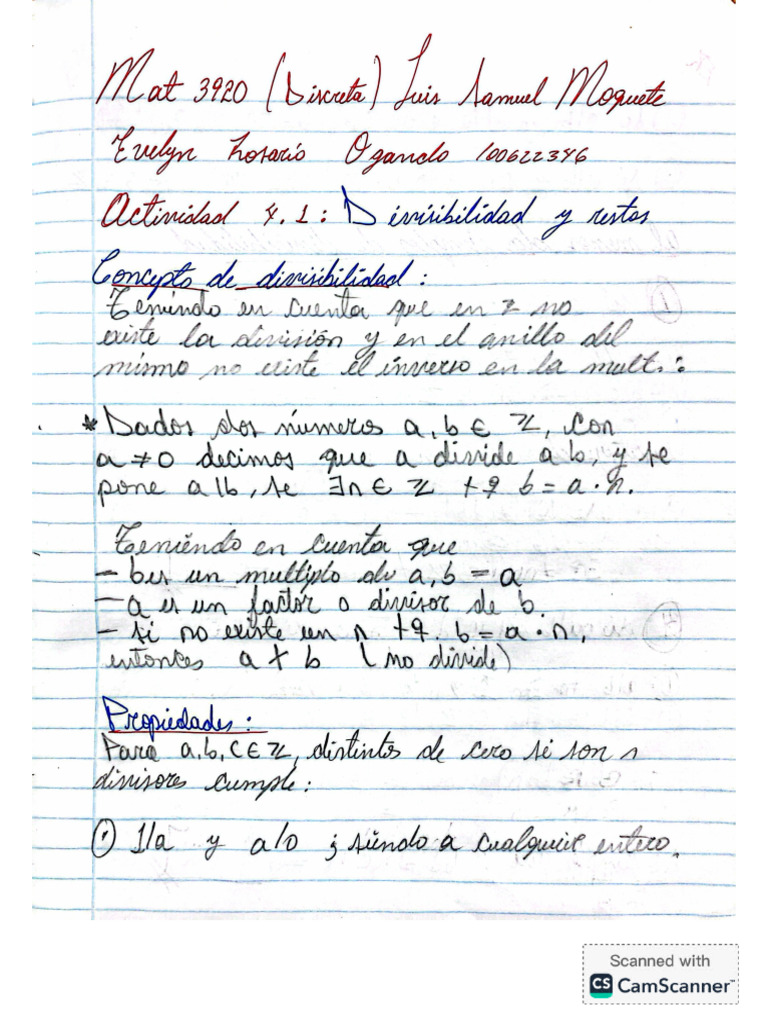 Mat 3920 (Discreta) Luis Samuel Moquete
Evelyn Rosario Ogando 100622346
Actividad 4.1: Divisibilidad y restos
Concepto de divisibilidad:
Teniendo en cuenta que en z no
existe la división y en el anillo del
mismo no existe el inverso en la mult.:
* Dados dos números a, b ∈ ℤ, con
a ≠ 0 decimos que a divide a b, y se
pone a|b, se ∃n ∈ ℤ tq b = a · n.
Teniendo en cuenta que
- b es un multiplo de a, b = a
- a es un factor o divisor de b.
- si no existe un n tq. b = a · n,
entonces a ∤ b (no divide)
Propiedades:
Para a, b, c ∈ ℤ, distintos de cero si son
divisores cumple:
1|a y a|0 ; siendo a cualquier entero.
Scanned with
CS CamScanner